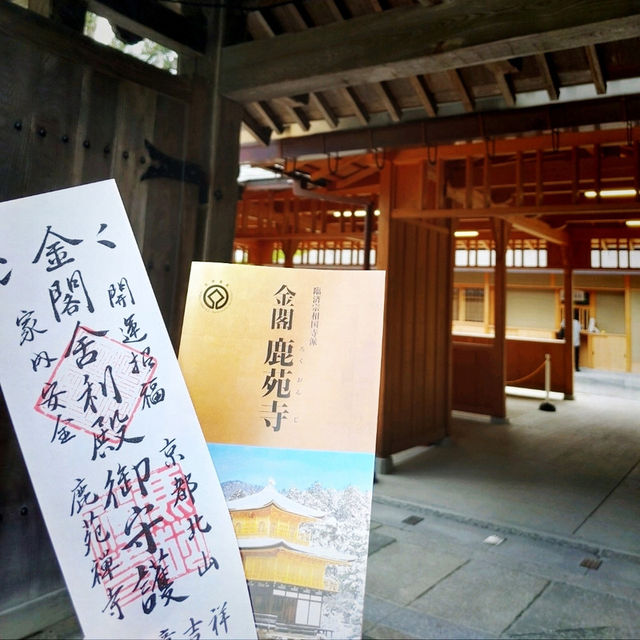 金閣舎利殿御守護
開運招福
家内安全
京都北山
鹿苑禅寺
吉祥
臨済宗相国寺派
金閣 鹿苑寺
ろくおんじ